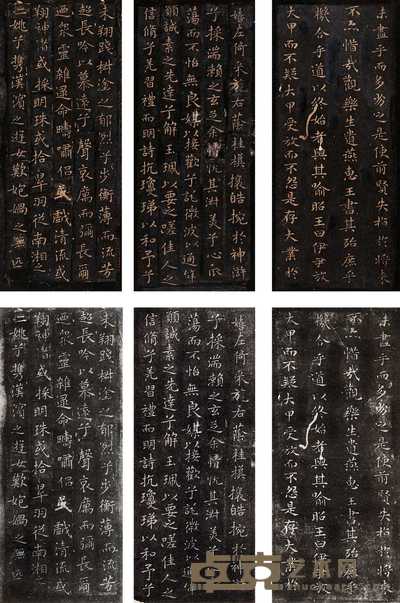 未盡乎而多劣之是使前賢失指於將來
不亦惜哉觀樂生遺燕惠王書其殆庶乎
機合乎道以終始者與其喻昭王曰伊尹放
大甲而不疑大甲受放而不怨是存大業於
嬉左倚采旄右蔭桂旗攘皓捥於神滸
兮採湍瀨之玄芝余情悅其淑美兮心振
蕩而不怡無良媒以接歡兮託微波以通辭
願誠素之先達兮解玉珮以要之嗟佳人之
信脩兮羌習禮而明詩抗瓊珶以和予兮
未翔踐椒塗之郁烈兮步衡薄而流芳
超長吟以慕遠兮聲哀厲而彌長爾
迺衆靈雜遝命疇嘯侶或戲清流或
翔神渚或採明珠或拾翠羽從南湘之
二姚兮攜漢濱之遊女歎匏媧之無匹
未盡乎而多劣之是使前賢失指於將來
不亦惜哉觀樂生遺燕惠王書其殆庶乎
機合乎道以終始者與其喻昭王曰伊尹放
大甲而不疑大甲受放而不怨是存大業於
嬉左倚采旄右蔭桂旗攘皓捥於神滸
兮採湍瀨之玄芝余情悅其淑美兮心振
蕩而不怡無良媒以接歡兮託微波以通辭
願誠素之先達兮解玉珮以要之嗟佳人之
信脩兮羌習禮而明詩抗瓊珶以和予兮
未翔踐椒塗之郁烈兮步衡薄而流芳
超長吟以慕遠兮聲哀厲而彌長爾
迺衆靈雜遝命疇嘯侶或戲清流或
翔神渚或採明珠或拾翠羽從南湘之
二姚兮攜漢濱之遊女歎匏媧之無匹
艺术网